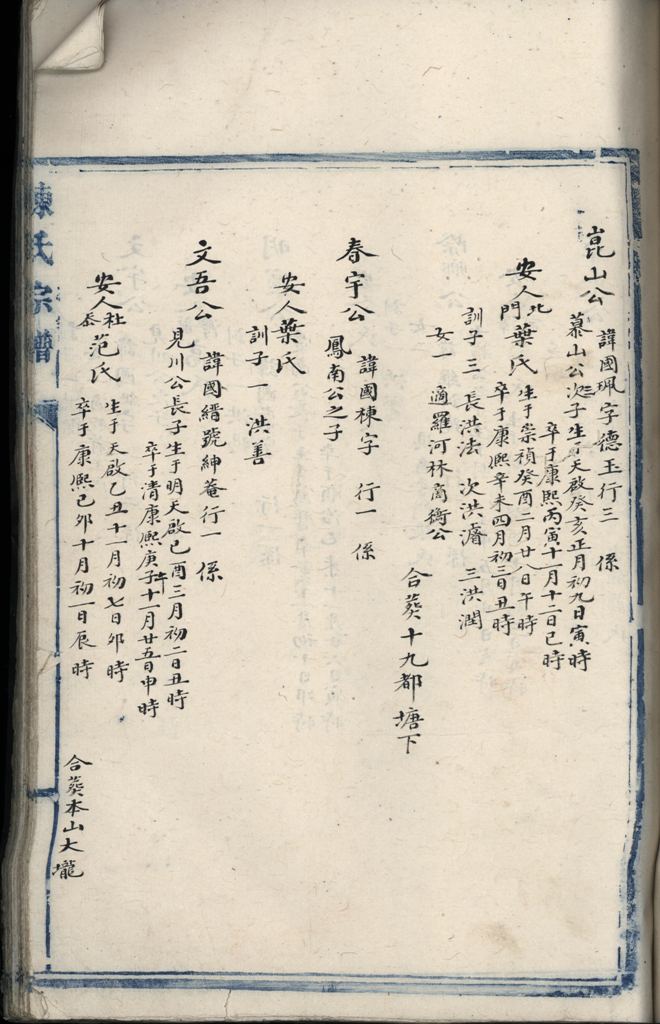 崑山公
諱國珮字德玉行三 係
慕山公次子生于天啟癸亥正月初九日寅時
卒于康熙丙寅十一月十二日巳時
安人北門葉氏
生于崇禎癸酉二月廿八日午時
卒于康熙辛未四月初三日丑時
訓子三 長洪法 次洪濬 三洪潤
女一 適羅河林商衡公
合葬十九都塘下
春宇公
諱國棟字 行一 係
鳳南公之子
安人葉氏
訓子一 洪善
文吾公
諱國縉號紳菴行一 係
見川公長子生于明天啟己酉三月初二日丑時
卒于清康熙庚子十一月廿五日申時
午
安人社泰范氏
生于天啟乙丑十一月初七日卯時
卒于康熙己卯十月初一日辰時
合葬本山大壠
陳氏宗譜